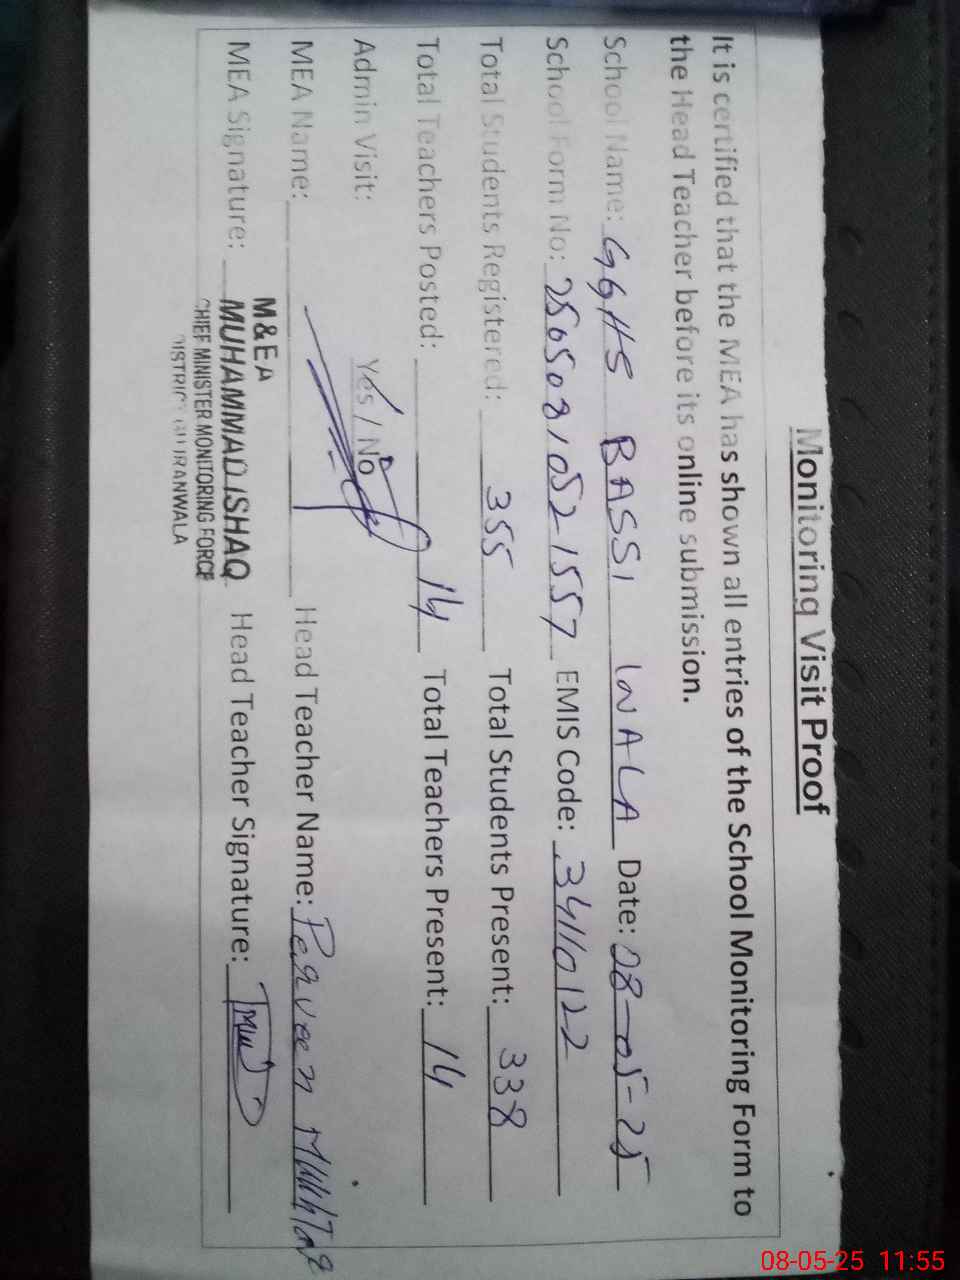 Monitoring Visit Proof
It is certified that the MEA has shown all entries of the School Monitoring Form to
the Head Teacher before its online submission.
School Name: GGHS BASSI WALA Date: 08-05-25
School Form No: 2505081052-1557 EMIS Code: 34110122
Total Students Registered: 355 Total Students Present: 338
Total Teachers Posted: 14 Total Teachers Present: 14
Admin Visit: Yes / No
MEA Name: Head Teacher Name: Perveen Mukhtar
M&EA
MEA Signature: MUHAMMAD ISHAQ Head Teacher Signature:
CHIEF MINISTER MONITORING FORCE
DISTRICT GUJRANWALA
08-05-25 11:55